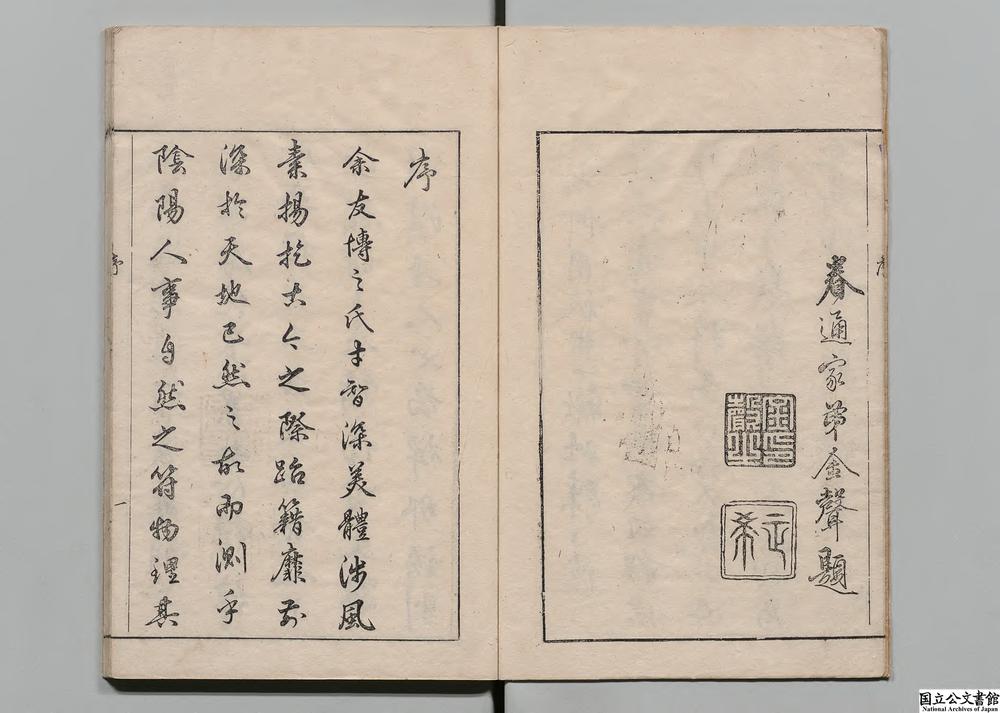 春通家弟金聲題
序
余友博之氏才智深美體涉風
秦揚扢古今之際跆籍靡前
深於天地已然之故而測乎
陰陽人事自然之符物理其
序
一
国立公文書館
National Archives of Japan